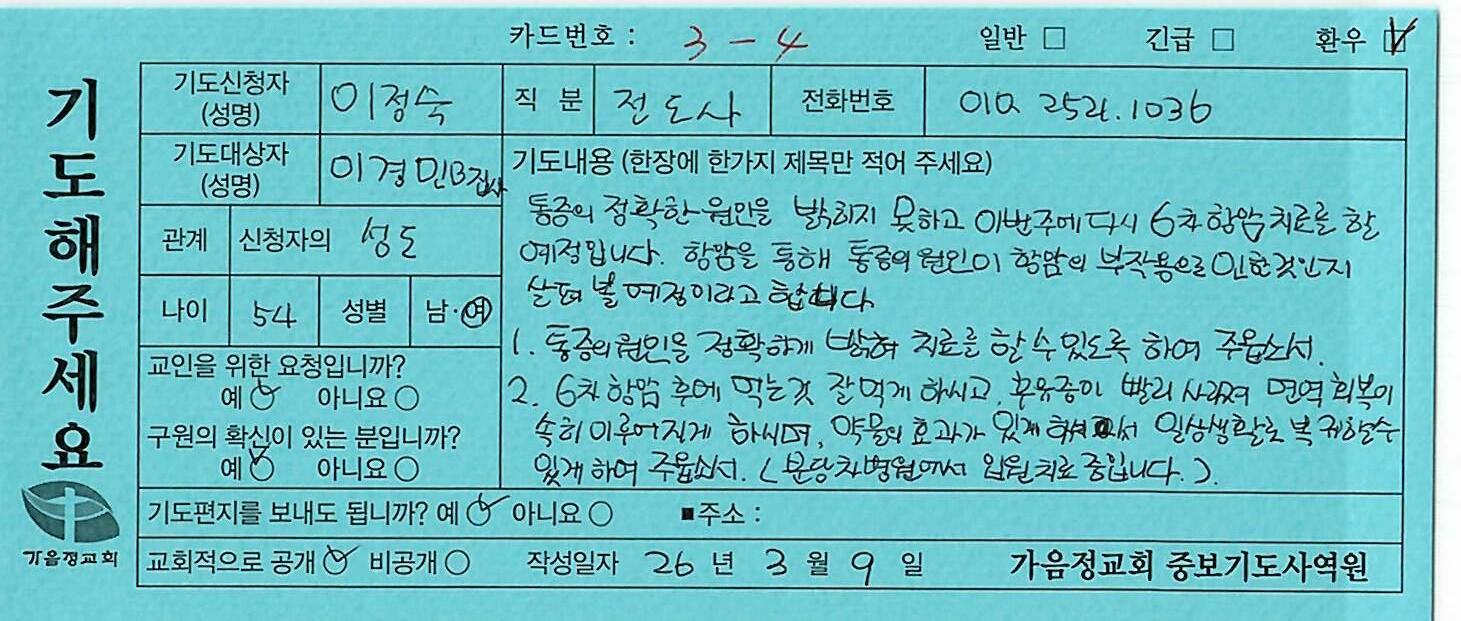 카드번호 : 3 - 4 일반 □ 긴급 □ 환우 ☑
기도해주세요
기도신청자 (성명) 이정숙 직 분 전도사 전화번호 010. 2521.1036
기도대상자 (성명) 이경민B집사
관계 신청자의 성도
나이 54 성별 남·여
교인을 위한 요청입니까?
예 ○ 아니요 ○
구원의 확신이 있는 분입니까?
예 ○ 아니요 ○
기도내용 (한장에 한가지 제목만 적어 주세요)
통증의 정확한 원인을 밝히지 못하고 이번주에 다시 6차 항암치료를 할
예정입니다. 항암을 통해 통증의 원인이 항암의 부작용으로 인한것인지
살펴 볼 예정이라고 합니다.
1. 통증의 원인을 정확하게 밝혀 치료를 할 수 있도록 하여 주옵소서.
2. 6차 항암 후에 먹는것 잘 먹게 하시고, 후유증이 빨리 사라져 면역 회복이
속히 이루어지게 하시며, 약물의 효과가 있게 하셔서 일상생활로 복귀할수
있게 하여 주옵소서. (분당차병원에서 입원치료 중입니다.).
기도편지를 보내도 됩니까? 예 ○ 아니요 ○ ■주소 :
교회적으로 공개 ○ 비공개 ○ 작성일자 26 년 3 월 9 일 가음정교회 중보기도사역원
가음정교회